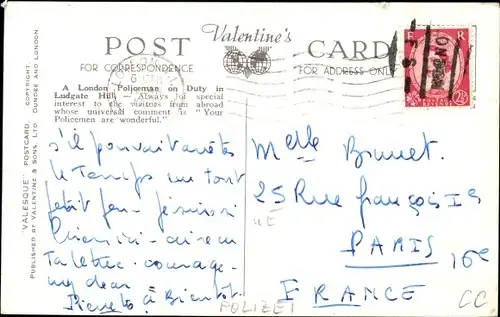 POST
Valentine's
CARD
FOR CORRESPONDENCE
FOR ADDRESS ONLY
E R
2½
A London Policeman on Duty in
Ludgate Hill. — Always of special
interest to the visitors from abroad
whose universal comment is "Your
Policemen are wonderful."
"VALESQUE" POSTCARD. COPYRIGHT.
PUBLISHED BY VALENTINE & SONS, LTD. DUNDEE AND LONDON
s'il pouvait
le temps un tout
petit peu - je suis si
bien ici -
Ta lettre. courage.
my dear
Pierrette à Bientôt.
Melle Brunet.
25 Rue François Ie
PARIS 16e
FRANCE
POLIZEI
CC